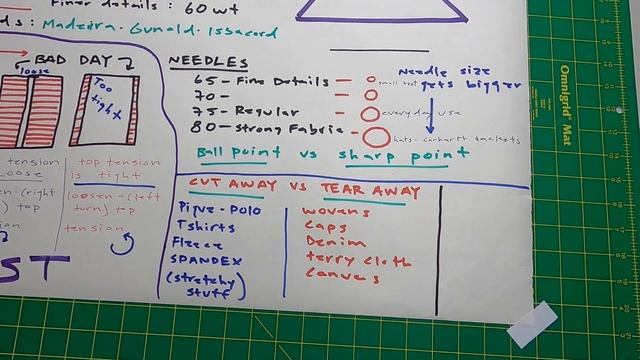 Finer details : 60 wt
ds : Madeira - Gunold - Issacord
BAD DAY
loose
Too
tight
tension
top tension
is tight
loosen-(left
turn) top
tension
en-(right
) top
ST
NEEDLES
65 - Fine Details -
70 -
75 - Regular -
80 - Strong Fabric -
small text
everyday use
hats - carhartt jackets
Needle size
gets bigger
Ball point vs sharp point
CUT AWAY vs TEAR AWAY
Pique - Polo
Tshirts
Fleece
SPANDEX
(stretchy
stuff)
wovens
caps
Denim
terry cloth
canves
Omnigrid® Mat